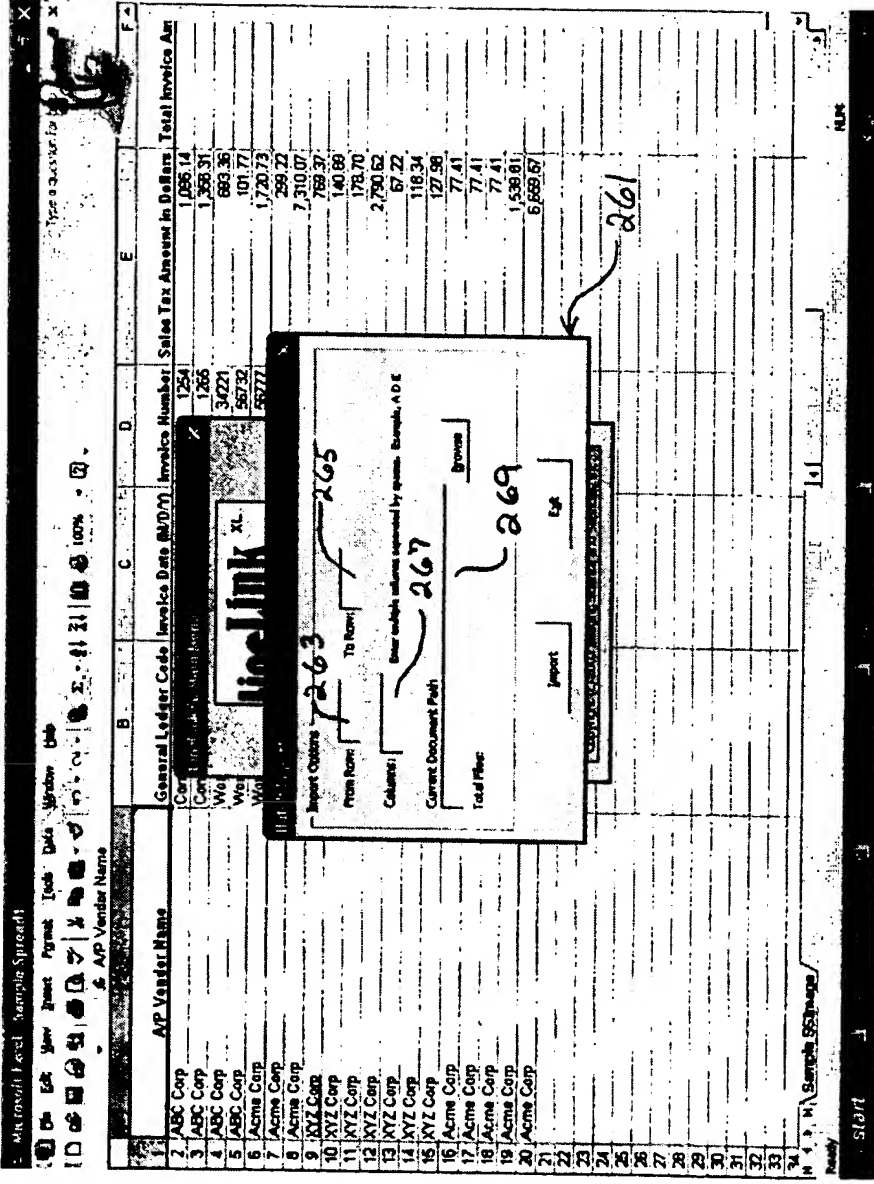 Microsoft Excel Sample Spread1
File Edit View Insert Format Tools Data Window Help
Type a question for
100%
A/P Vendor Name
B C D E F
A/P Vendor Name General Ledger Code Invoice Date (M/D/Y) Invoice Number Sales Tax Amount in Dollars Total Invoice Am
2 ABC Corp Con 1254 1,096.14
3 ABC Corp Con 1266
4 ABC Corp 34221 693.36
5 ABC Corp 56732 101.77
6 Acme Corp 1,720.73
7 Acme Corp 299.22
8 Acme Corp 7,310.07
9 XYZ Corp 769.37
10 XYZ Corp 140.89
11 XYZ Corp 178.70
12 XYZ Corp 2,790.62
13 XYZ Corp 67.22
14 XYZ Corp 118.34
15 XYZ Corp 127.98
16 Acme Corp 77.41
17 Acme Corp 77.41
18 Acme Corp 77.41
19 Acme Corp 1,539.81
20 Acme Corp 6,669.67
21
22
23
24
25
26
27
28
29
30
31
32
33
34
LineLink XL
Import Options 263
265
From Row: To Row:
Columns: Enter multiple columns separated by spaces. Example, A D E
267
Current Document Path
Browse
269
Total Files:
Import Exit
261
Sample SSImage
Ready NUM
start